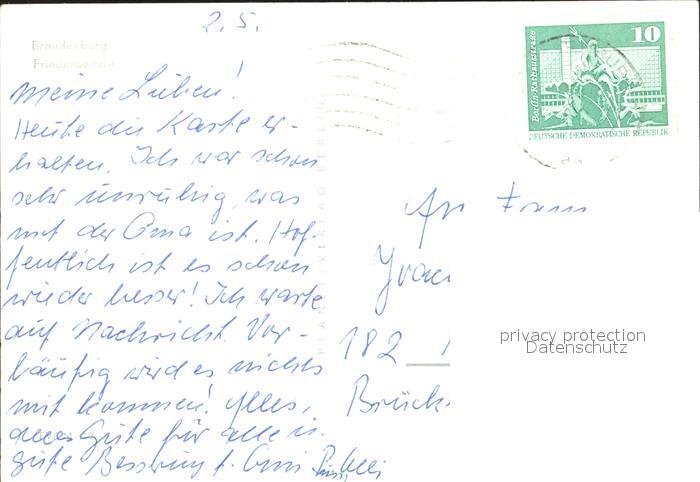 2.5.
Brandenburg
Friedenswarte
Meine Lieben!
Heute die Karte er-
halten. Ich war schon
sehr unruhig, was
mit der Oma ist. Hof-
fentlich ist es schon
wieder besser! Ich warte
auf Nachricht. Vor-
läufig wird es nichts
mit kommen! Alles,
alles Gute für alle u.
gute Besserung f. Omi
PLANET-VERLAG BERLIN
10
Berlin-Rathausstraße
DEUTSCHE DEMOKRATISCHE REPUBLIK
An
182
Brück
privacy protection
Datenschutz